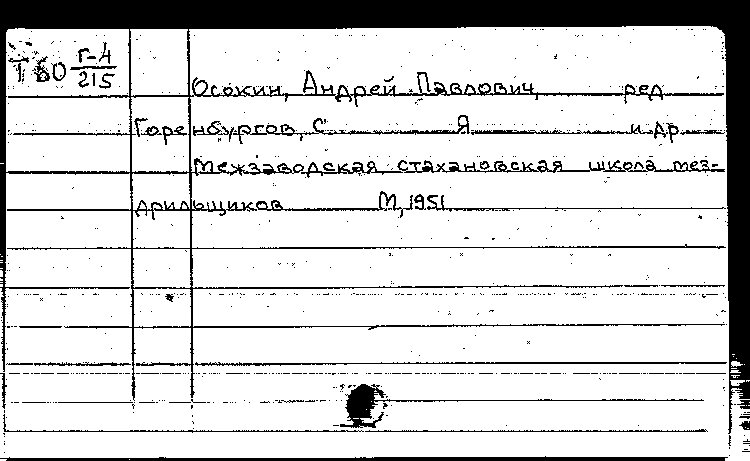 Т 60 Г-4/215
Осокин, Андрей Павлович, ред
Горенбургов, С Я и др
Межзаводская стахановская школа мез-
дрильщиков М, 1951